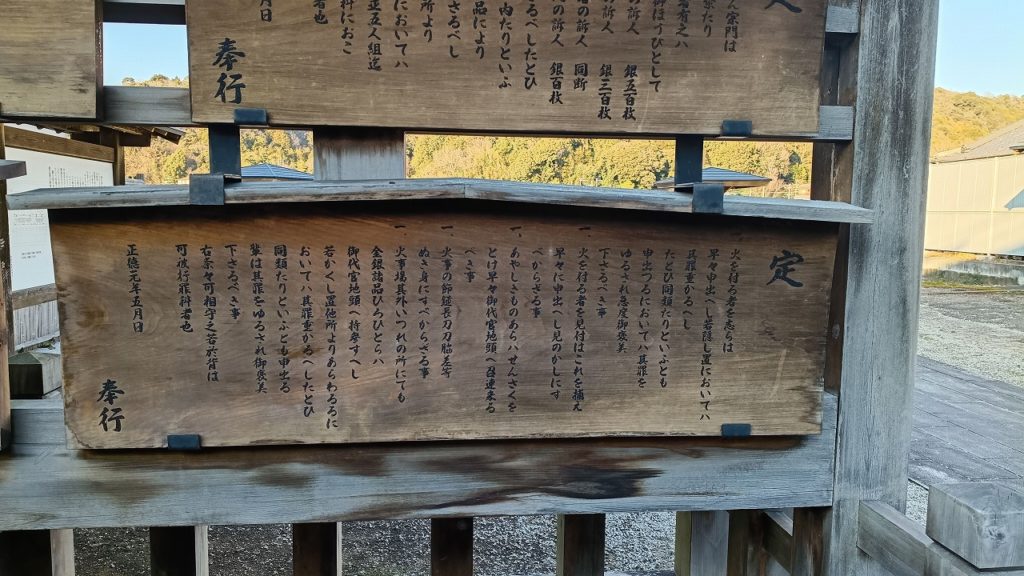 ん宗門は
祭たり
者有之ハ
御ほうびとして
の訴人 銀五百枚
の訴人 銀三百枚
者の訴人 同断
の訴人 銀百枚
内たりといふ
品により
るべしたとひ
さるべし
所より
においてハ
正五人組迄
科におこ
者也
月日
奉行
定
一 火を付る者を志らは
早々申出へし若隠し置においてハ
其罪重かるへし
たとひ同類たりといふとも
申出つるにおいてハ其罪を
ゆるされ急度御褒美
下さるへき事
一 火を付る者を見付はこれを捕え
早々に申出へし見のかしにす
へからさる事
一 あやしきものあらハせんさくを
とけ早々御代官地頭へ召連来る
へき事
一 火事の節鑓長刀刀脇差等
ぬき身にすへからざる事
一 火事場其外いつれの所にても
金銀諸品ひろひとらハ
御代官地頭へ持参すへし
若かくし置他所よりあらわるるに
おいてハ其罪重かるへしたとひ
同類たりといふとも申出る
輩は其罪をゆるされ御褒美
下さるへき事
右条々可相守之若於背は
可被行罪科者也
正徳元年五月日
奉行